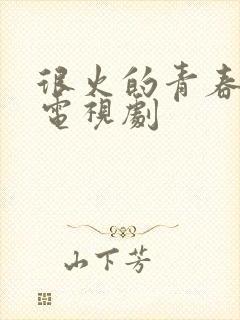 很火的青春
電視劇
山下芳